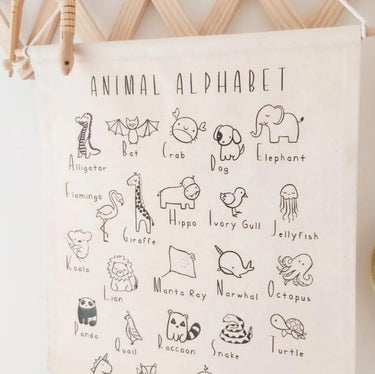 ANIMAL ALPHABET
Alligator Bat Crab Dog Elephant
Flamingo Giraffe Hippo Ivory Gull Jellyfish
Koala Lion Manta Ray Narwhal Octopus
Panda Quail Raccoon Snake Turtle